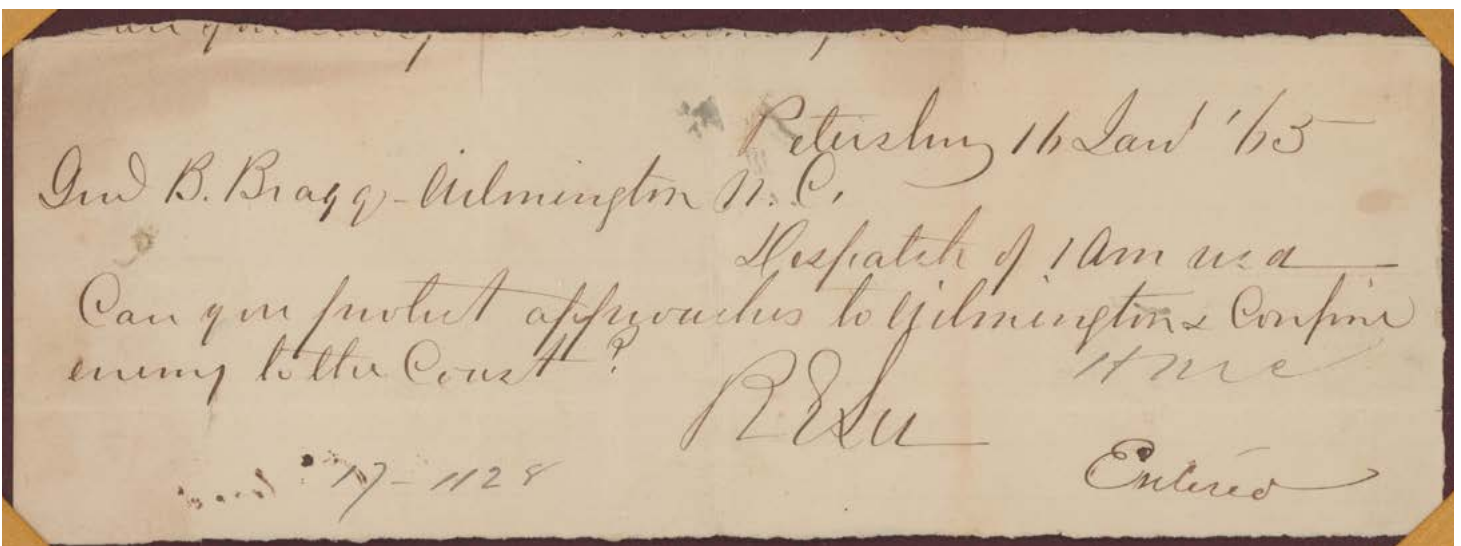 Petersburg 16 Jany '65
Genl B. Bragg - Wilmington N. C.
Despatch of 1 Am recd
Can you protect approaches to Wilmington & Confine
enemy to the Coast?
R E Lee
17 - 1128
Entered